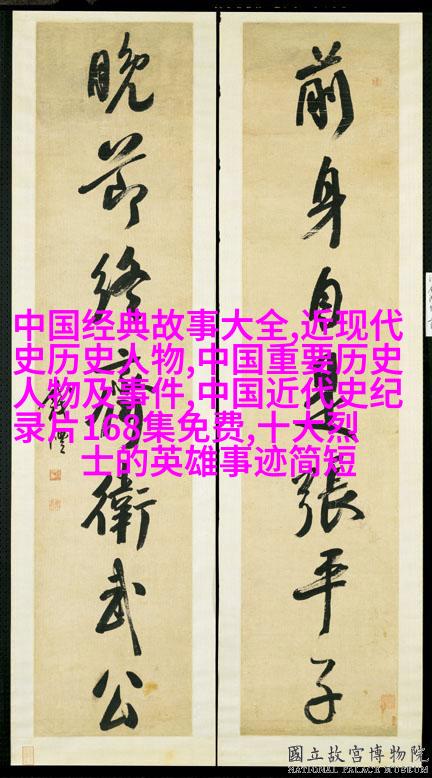 前身自是張平子
晚節終齊衛武公
錢灃
中国经典故事大全,近现代
史历史人物,中国重要历史
人物及事件,中国近代史纪
录片168集免费,十大烈
士的英雄事迹简短
國立故宮博物院
NATIONAL PALACE MUSEUM